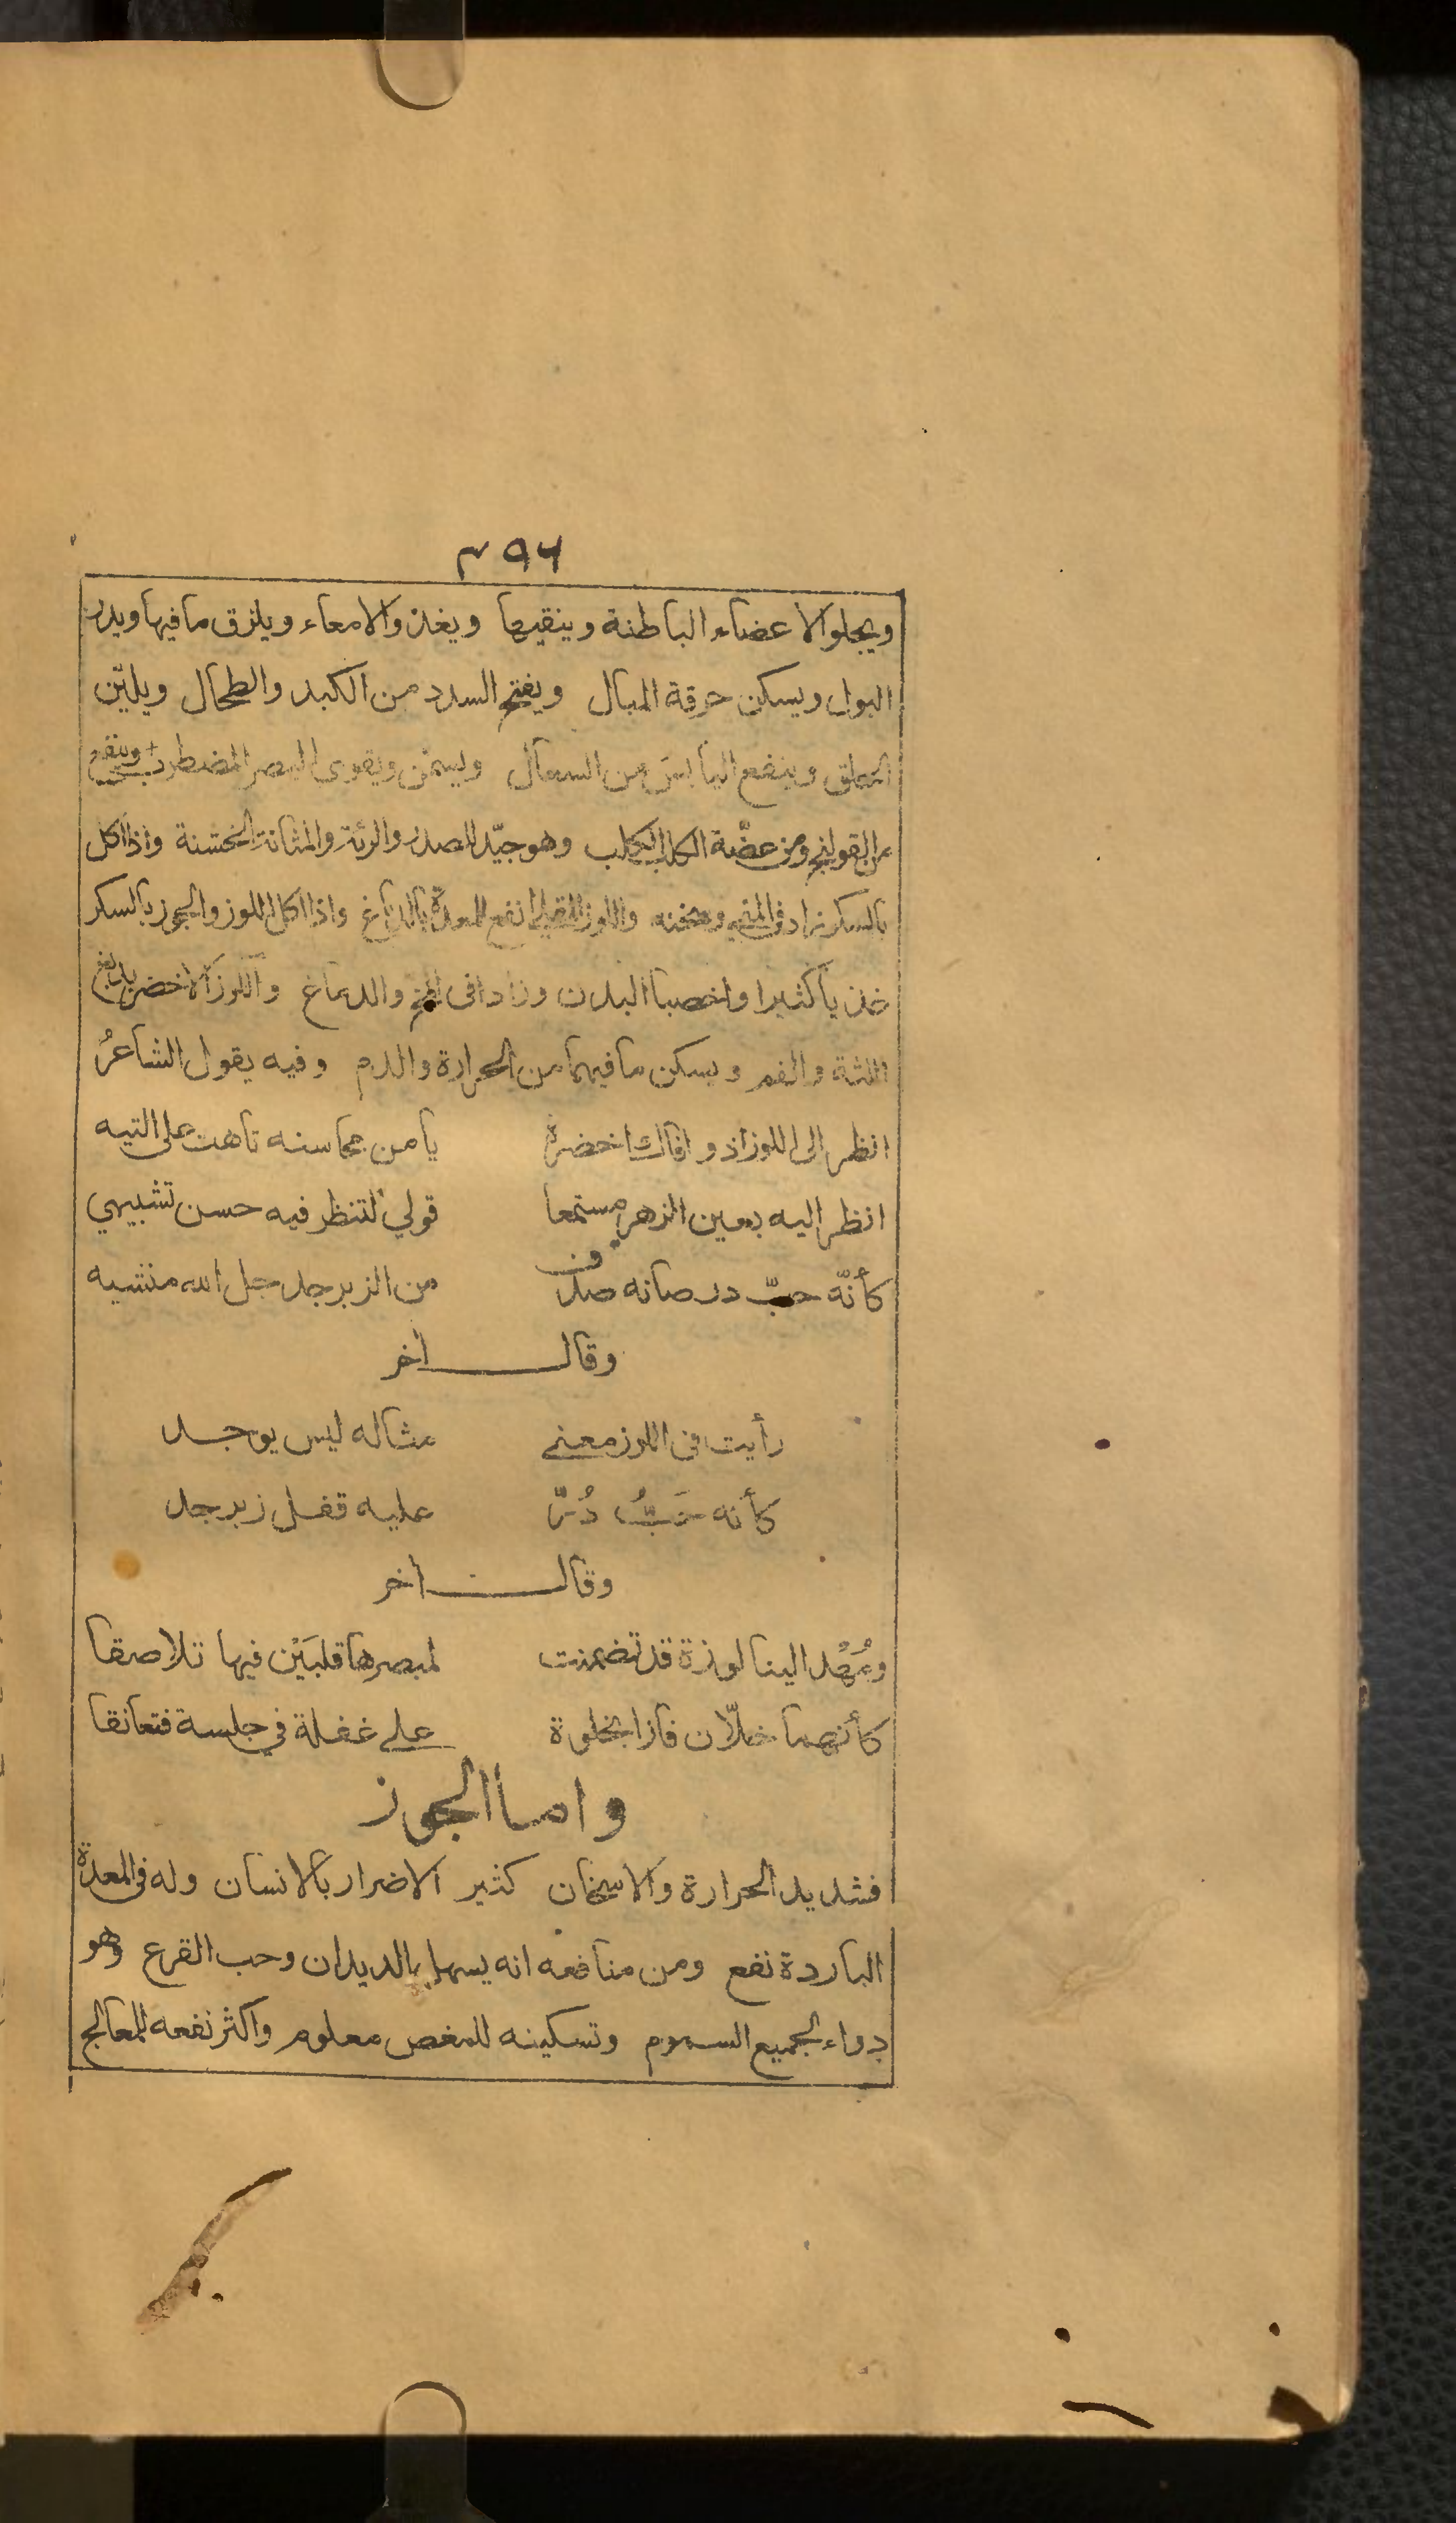 ٣٩٦
ويجلو الاعضاء الباطنة وينقيها ويغذو الامعاء ويلزق ما فيها ويدر
البول ويسكن حرقة المبال ويفتح السدد من الكبد والطحال ويليّن
الحلق وينفع اليابس من السعال ويسمّن ويقوى البصر المضطرب وينفع
من القولنج ومن عضّة الكلب الكلب وهو جيّد للصدر والرئة والمثانة الخشنة واذا اكل
بالسكر زاد فى المنى وسخنه واللوز انفع للمعدة بالدباغ واذا اكل اللوز والجوز بالسكر
غذيا كثيرا واخصبا البدن وزادا فى المخ والدماغ واللوز الاخضر يدبغ
اللثة والفم ويسكن ما فيهما من الحرارة والدم وفيه يقول الشاعرُ
انظر الى اللوز اذ وافاك اخضرة يا من محاسنه تاهت على التيه
انظر اليه بعين الزهر مستمعا قولي لتنظر فيه حسن تشبيهي
كأنّه حبّ در صانه صدف من الزبرجد جل الله منشيه
وقال اخر
رأيت فى اللوز معنى مثاله ليس يوجد
كأنه حَبُّ دُرّ عليه قفل زبرجد
وقال اخر
ومُهْد الينا لوزة قد تضمنت لمبصرها قلبَيْن فيها تلاصقا
كأنهما خلّان فازا بخلوة على غفلة في جلسة فتعانقا
واما الجوز
فشديد الحرارة والاسخان كثير الاضرار بالانسان وله فى المعدة
الباردة نفع ومن منافعه انه يسهل بالديدان وحب القرع وهو
دواء لجميع السموم وتسكينه للمغص معلوم واكثر نفعه للمعالج